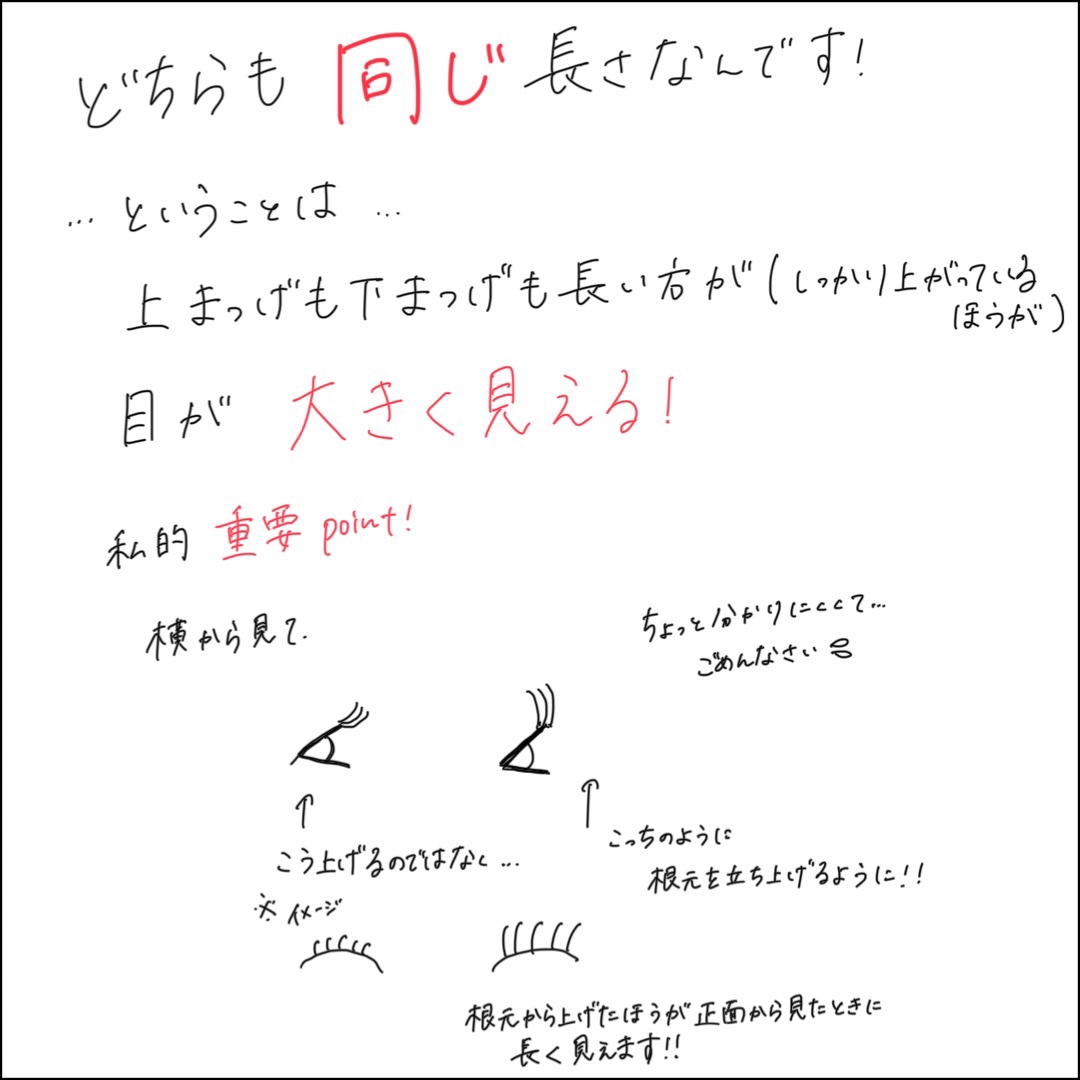 どちらも 同じ 長さなんです!
… ということは …
上まつげも下まつげも長い方が(しっかり上がっている
ほうが)
目が 大きく見える!
私的 重要 point!
横から見て.
ちょっと分かりにくくて…
ごめんなさい
こう上げるのではなく…
こっちのように
根元を立ち上げるように!!
※ イメージ
根元から上げたほうが正面から見たときに
長く見えます!!